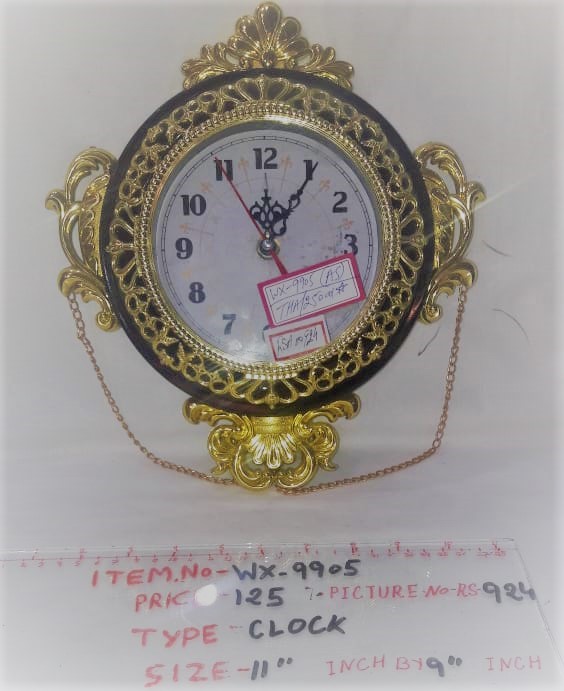 11 12 1
10 2
9 3
8
7
WX-9905 (A5)
ITEM.No-WX-9905
PRIC -125 /- PICTURE-No-RS-924
TYPE-CLOCK
SIZE-11" INCH BY 9" INCH